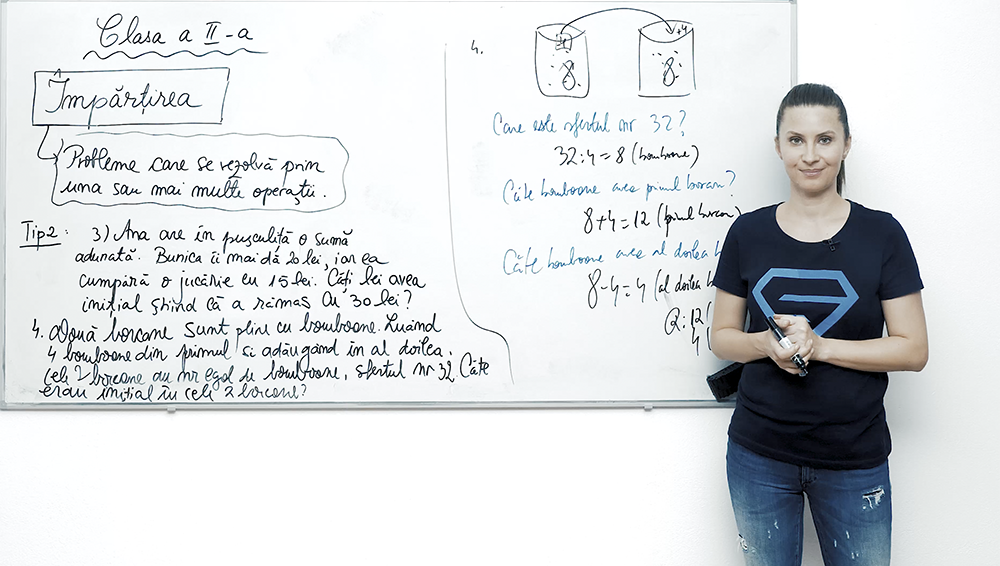 Clasa a II-a
Împărțirea
Probleme care se rezolvă prin
una sau mai multe operații.
Tip 2: 3) Ana are în pușculiță o sumă
adunată. Bunica îi mai dă 20 lei, iar ea
cumpără o jucărie cu 15 lei. Câți lei avea
inițial știind că a rămas cu 30 lei?
4. Două borcane sunt pline cu bomboane. Luând
4 bomboane din primul și adăugând în al doilea,
cele 2 borcane au nr egal de bomboane, sfertul nr 32. Câte
erau inițial în cele 2 borcane?
4.
-4 +4
8 8
Care este sfertul nr 32?
32:4=8 (bomboane)
Câte bomboane avea primul borcan?
8+4=12 (primul borcan)
Câte bomboane avea al doilea b
8-4=4 (al doilea b
R: 12(
4 (